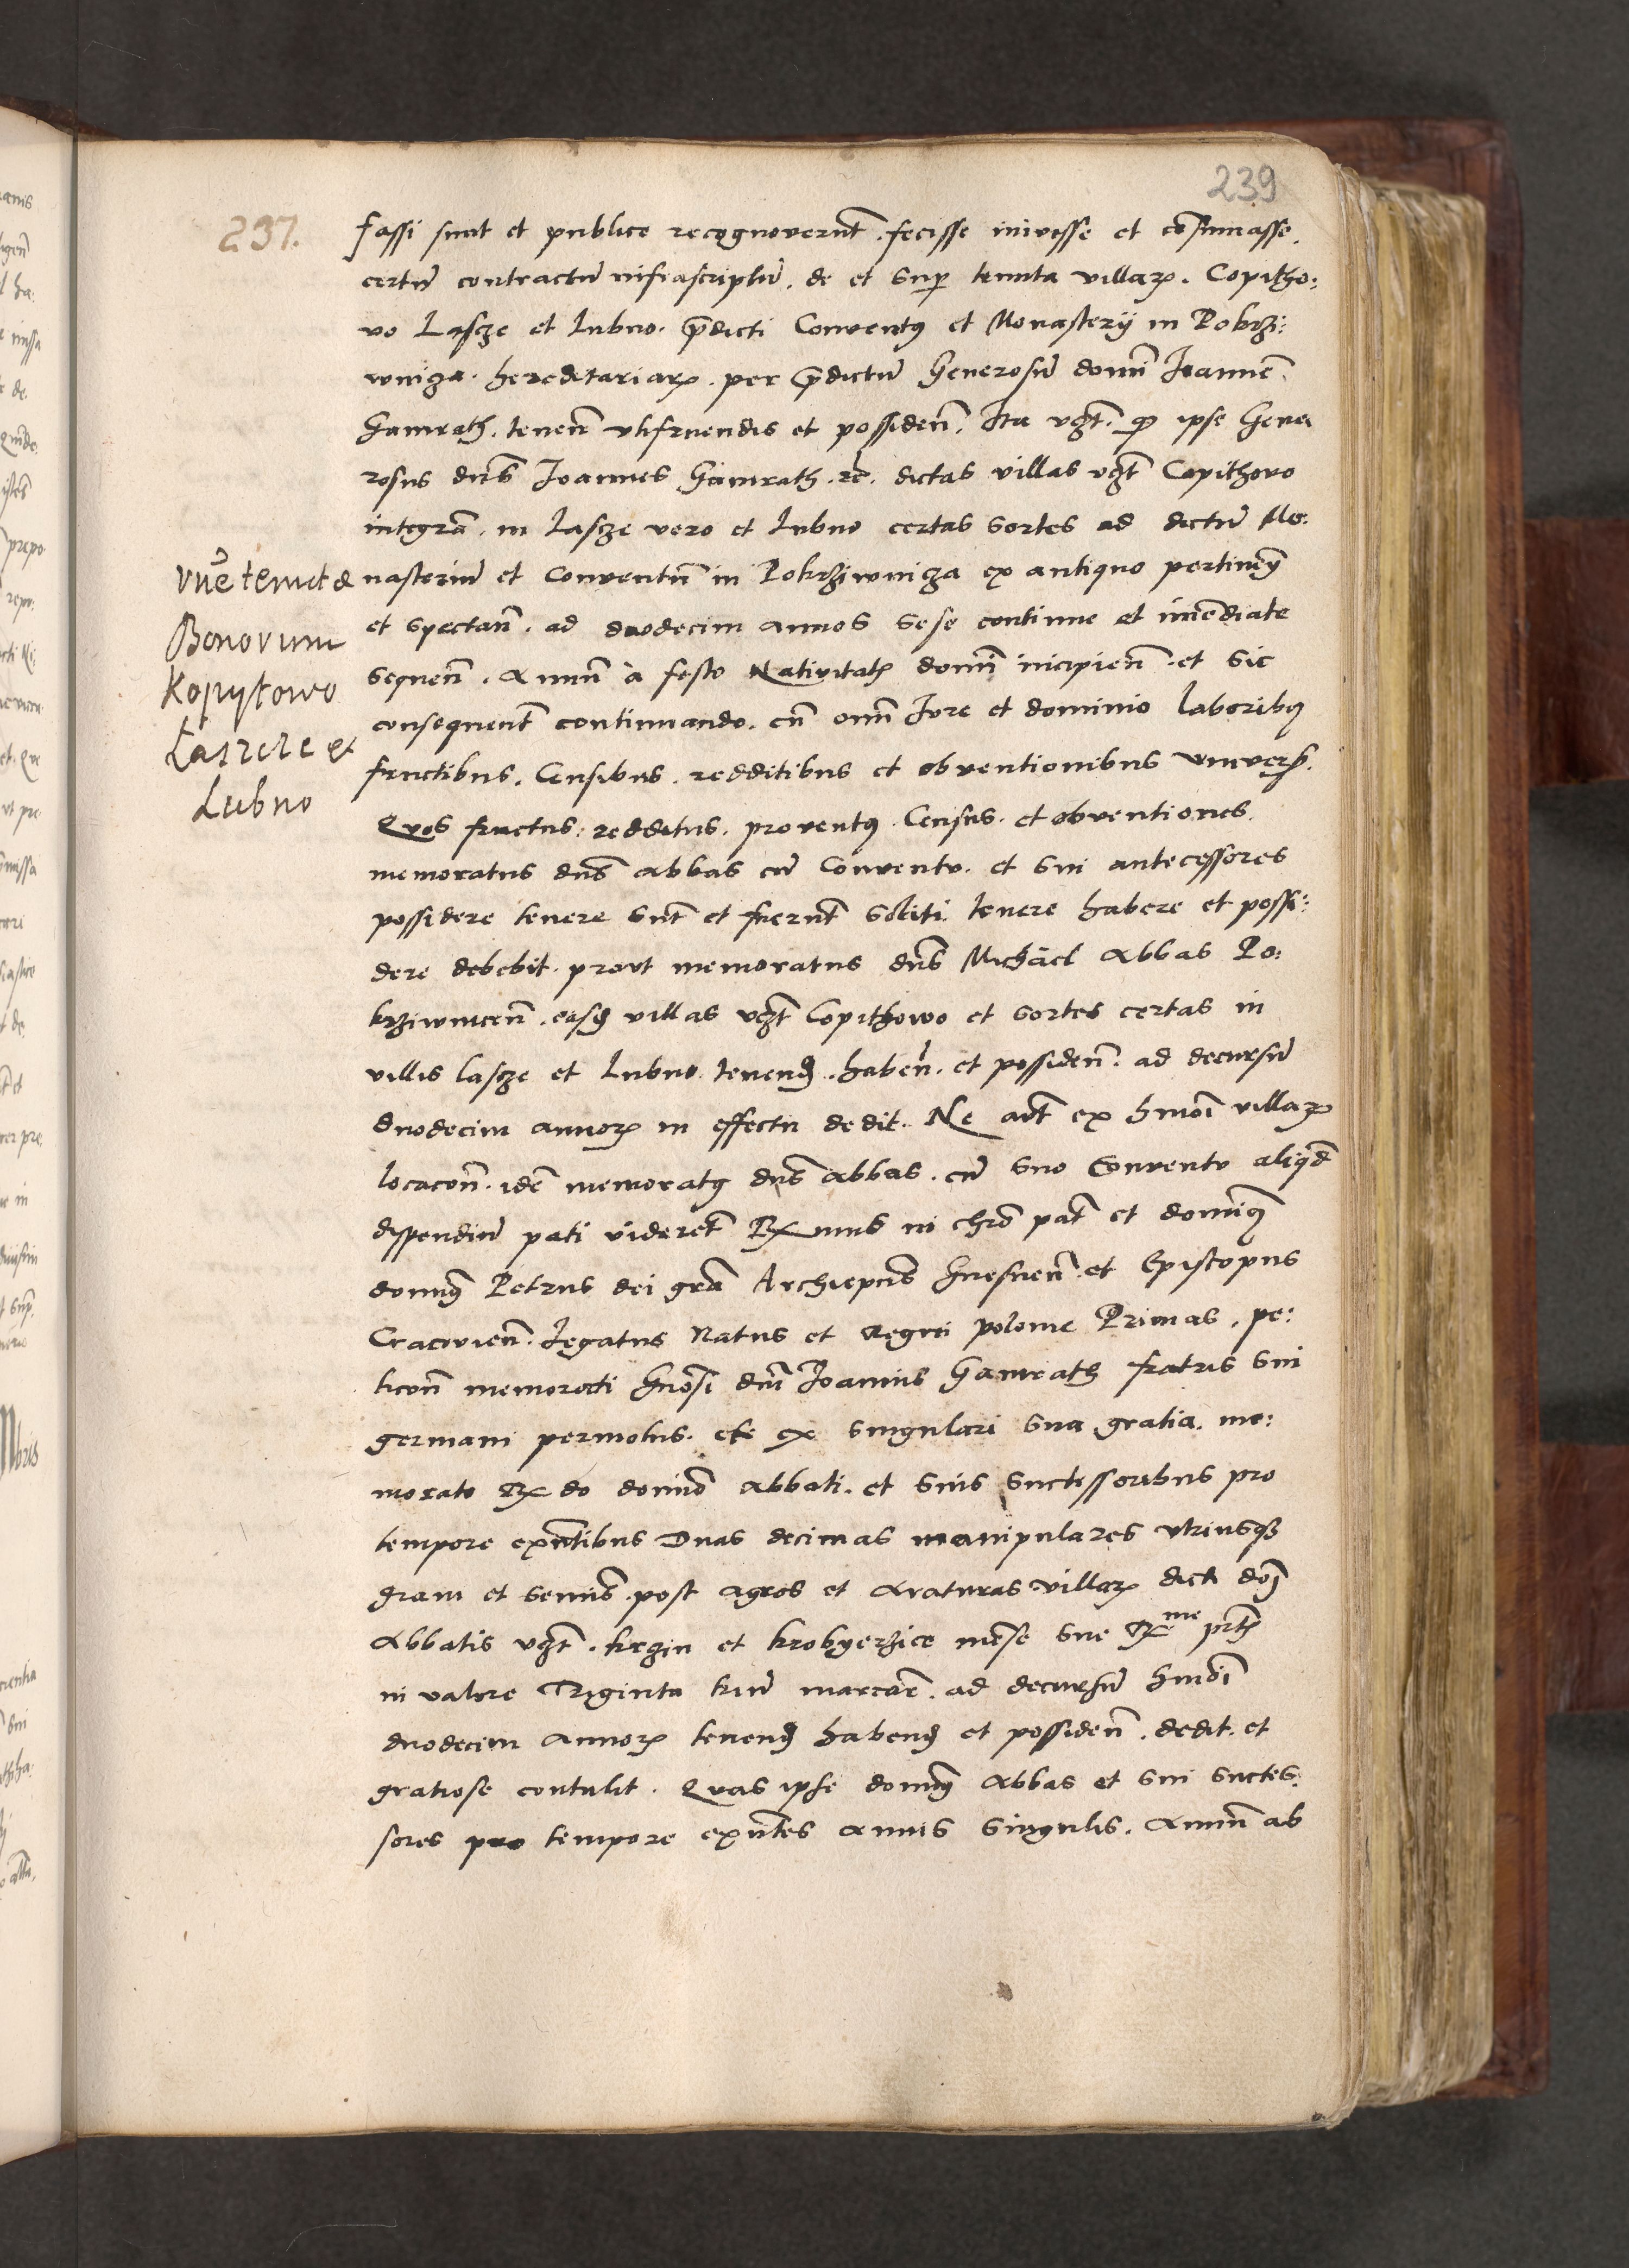 239
237.
fassi sunt et publice recognoverūt . fecisse inivisse et cōsumasse .
certū contractū infrascriptū . de et sup tenuta villaꝝ . Copitho:
vo Lascze et Lubno . p̄dicti Conventꝰ et Monasterij in Pokrzi:
wnicza . hereditariaꝝ . per p̄dictū Generosū domī Joannē
Gamrath . tenen̄ vtifruendis et possiden̄ . Ita vꝫt . ꝙ ipse Gene
rosus dn̄s Joannes Gamrath . rc̄ . dictas villas vꝫt Copithovo
integrā . in Lascze vero et Lubno certas sortes ad dictū Mo:
nasteriū et Conventū in Pokrziwnicza ex antiquo pertinen̄
et spectan̄ . ad duodecim annos sese continue et imēdiate
sequen̄ . Annū à festo Nativitatꝭ domī incipien̄ . et sic
consequent̄ continuando . cū omī Jure et dominio laboribꝰ
fructibus . Censibus . redditibus et obventionibus vniversꝭ .
Quos fructus . redditus . proventꝰ . Census . et obventiones .
memoratus dn̄s Abbas cū Conventu . et sui antecessores
possidere tenere sūt et fuerūt soliti . tenere habere et possi:
dere debebit . prout memoratus dn̄s Michael Abbas Po:
krziwnicen̄ . easdꝫ villas vꝫt Copithowo et sortes certas in
villis Lascze et Lubno tenendꝭ . haben̄ . et possiden̄ . ad decursū
duodecim annoꝝ in effectu dedit . Ne aūt ex hm̄oi villaꝝ
locacōn̄ . idē memoratꝰ dn̄s Abbas . cū suo Conventu aliqd̄
dispendiū pati videret̄ Rx mus in chrō pat̄ et domīꝰ
domīꝰ Petrus dei grā Archiepūs Gnesnen̄ . et Episcopus
Cracovien̄ . Legatus Natus et Regni polonie Primas . pe:
ticōn̄ memorati Gnōsi dnī Joannis Gamrath fratris sui
germani permotus . etc ex singulari sua gratia . me:
morato Rx do domīo Abbati . et suis successoribus pro
tempore exn̄tibus Duas decimas manipulares vtriusqꝫ
grani et seminis . post agros et Araturas villaꝝ dicti doī
Abbatis vꝫt . krzin et krobyerzice mēse sue Rx me prtꝭ
in valore Triginta triū marcar̄ . ad decursū hm̄oi
duodecim annoꝝ tenendꝭ habendꝭ et possiden̄ . dedit . et
gratiose contulit . Quas ipse domīꝰ Abbas et sui succes:
sores pro tempore exn̄tes annis singulis . Annū ab
tenutæ
Bonorum
Kopytowo
Laszcze et
Lubno